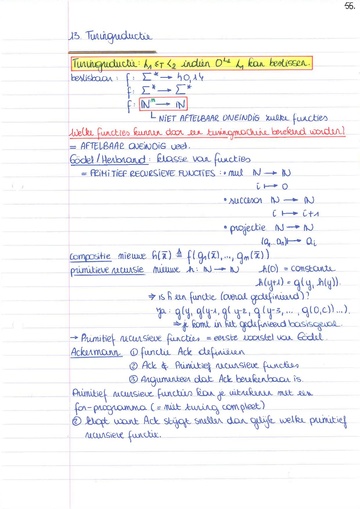 56.
13. Turingreductie
Turingreductie: L1 ≤T L2 indien O^L2 L1 kan beslissen.
beslisbaar: f: Σ* → {0,1}
f: Σ* → Σ*
f: ℕⁿ → ℕ
↳ NIET AFTELBAAR ONEINDIG zulke functies
Welke functies kunnen door een turingmachine berekend worden?
= AFTELBAAR ONEINDIG veel.
Gödel / Herbrand: klasse van functies
= PRIMITIEF RECURSIEVE FUNCTIES: • nul ℕ → ℕ
i ↦ 0
• successor ℕ → ℕ
i ↦ i+1
• projectie ℕ → ℕ
(a1..an) ↦ ai
compositie nieuwe h(x̄) ≜ f(g1(x̄), ..., gm(x̄))
primitieve recursie nieuwe h: ℕ → ℕ h(0) = constante
h(y+1) = g(y, h(y))
→ is h een functie (overal gedefinieerd)?
ja: g(y, g(y-1, g(y-2, g(y-3, ..., g(0,c))...)
je komt in het gedefinieerd basisgeval
→ Primitief recursieve functies = eerste voorstel van Gödel.
Ackermann ① functie Ack definiëren
② Ack ∉ Primitief recursieve functies
③ Argumenteer dat Ack berekenbaar is.
Primitief recursieve functies kan je uitrekenen met een
for-programma (= niet turing compleet)
② klopt want Ack stijgt sneller dan gelijk welke primitief
recursieve functie.